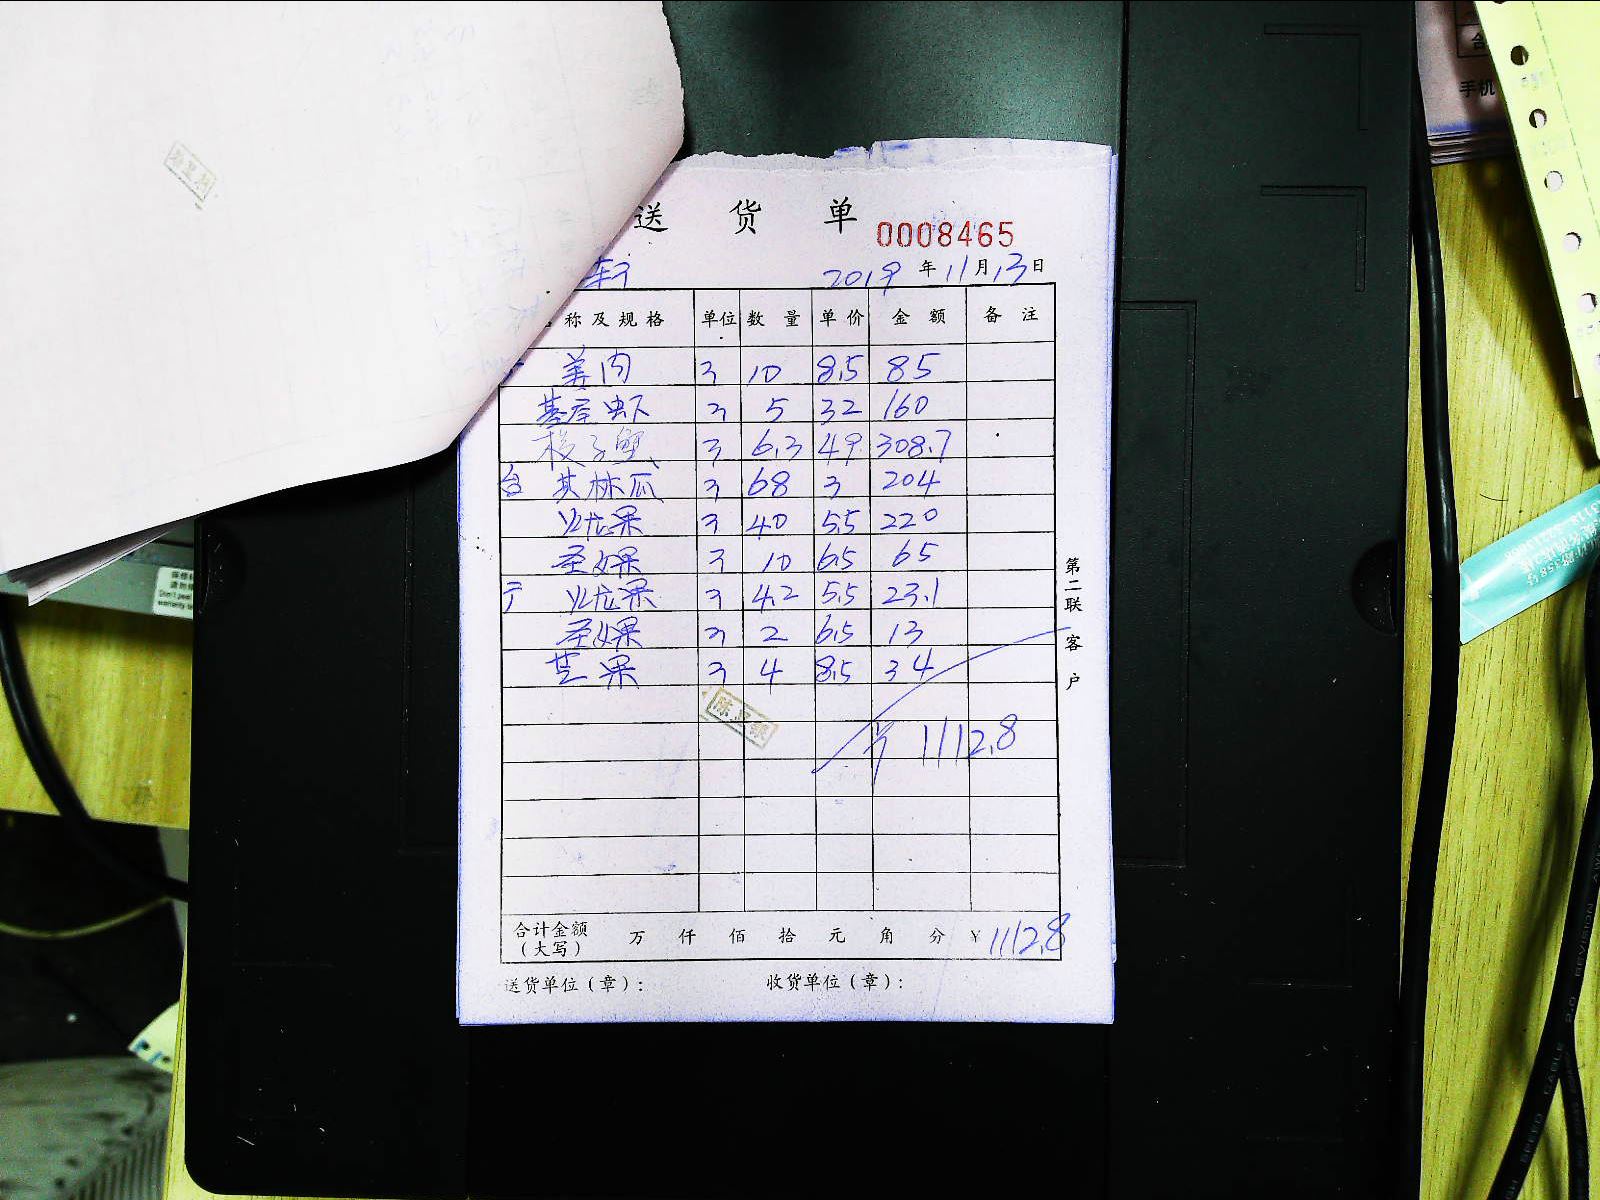 送 货 单 0008465
2019 年 11 月 13 日
称及规格 单位 数量 单价 金额 备注
姜肉 斤 10 8.5 85
基尾虾 斤 5 32 160
梭子蟹 斤 6.3 49 308.7
台 其林瓜 斤 68 3 204
火龙果 斤 40 5.5 220
圣女果 斤 10 6.5 65
火龙果 斤 4.2 5.5 23.1
圣女果 斤 2 6.5 13
芒果 斤 4 8.5 34
¥ 1112.8
合计金额（大写） 万 仟 佰 拾 元 角 分 ¥1112.8
送货单位（章）： 收货单位（章）：
第二联 客户
手机